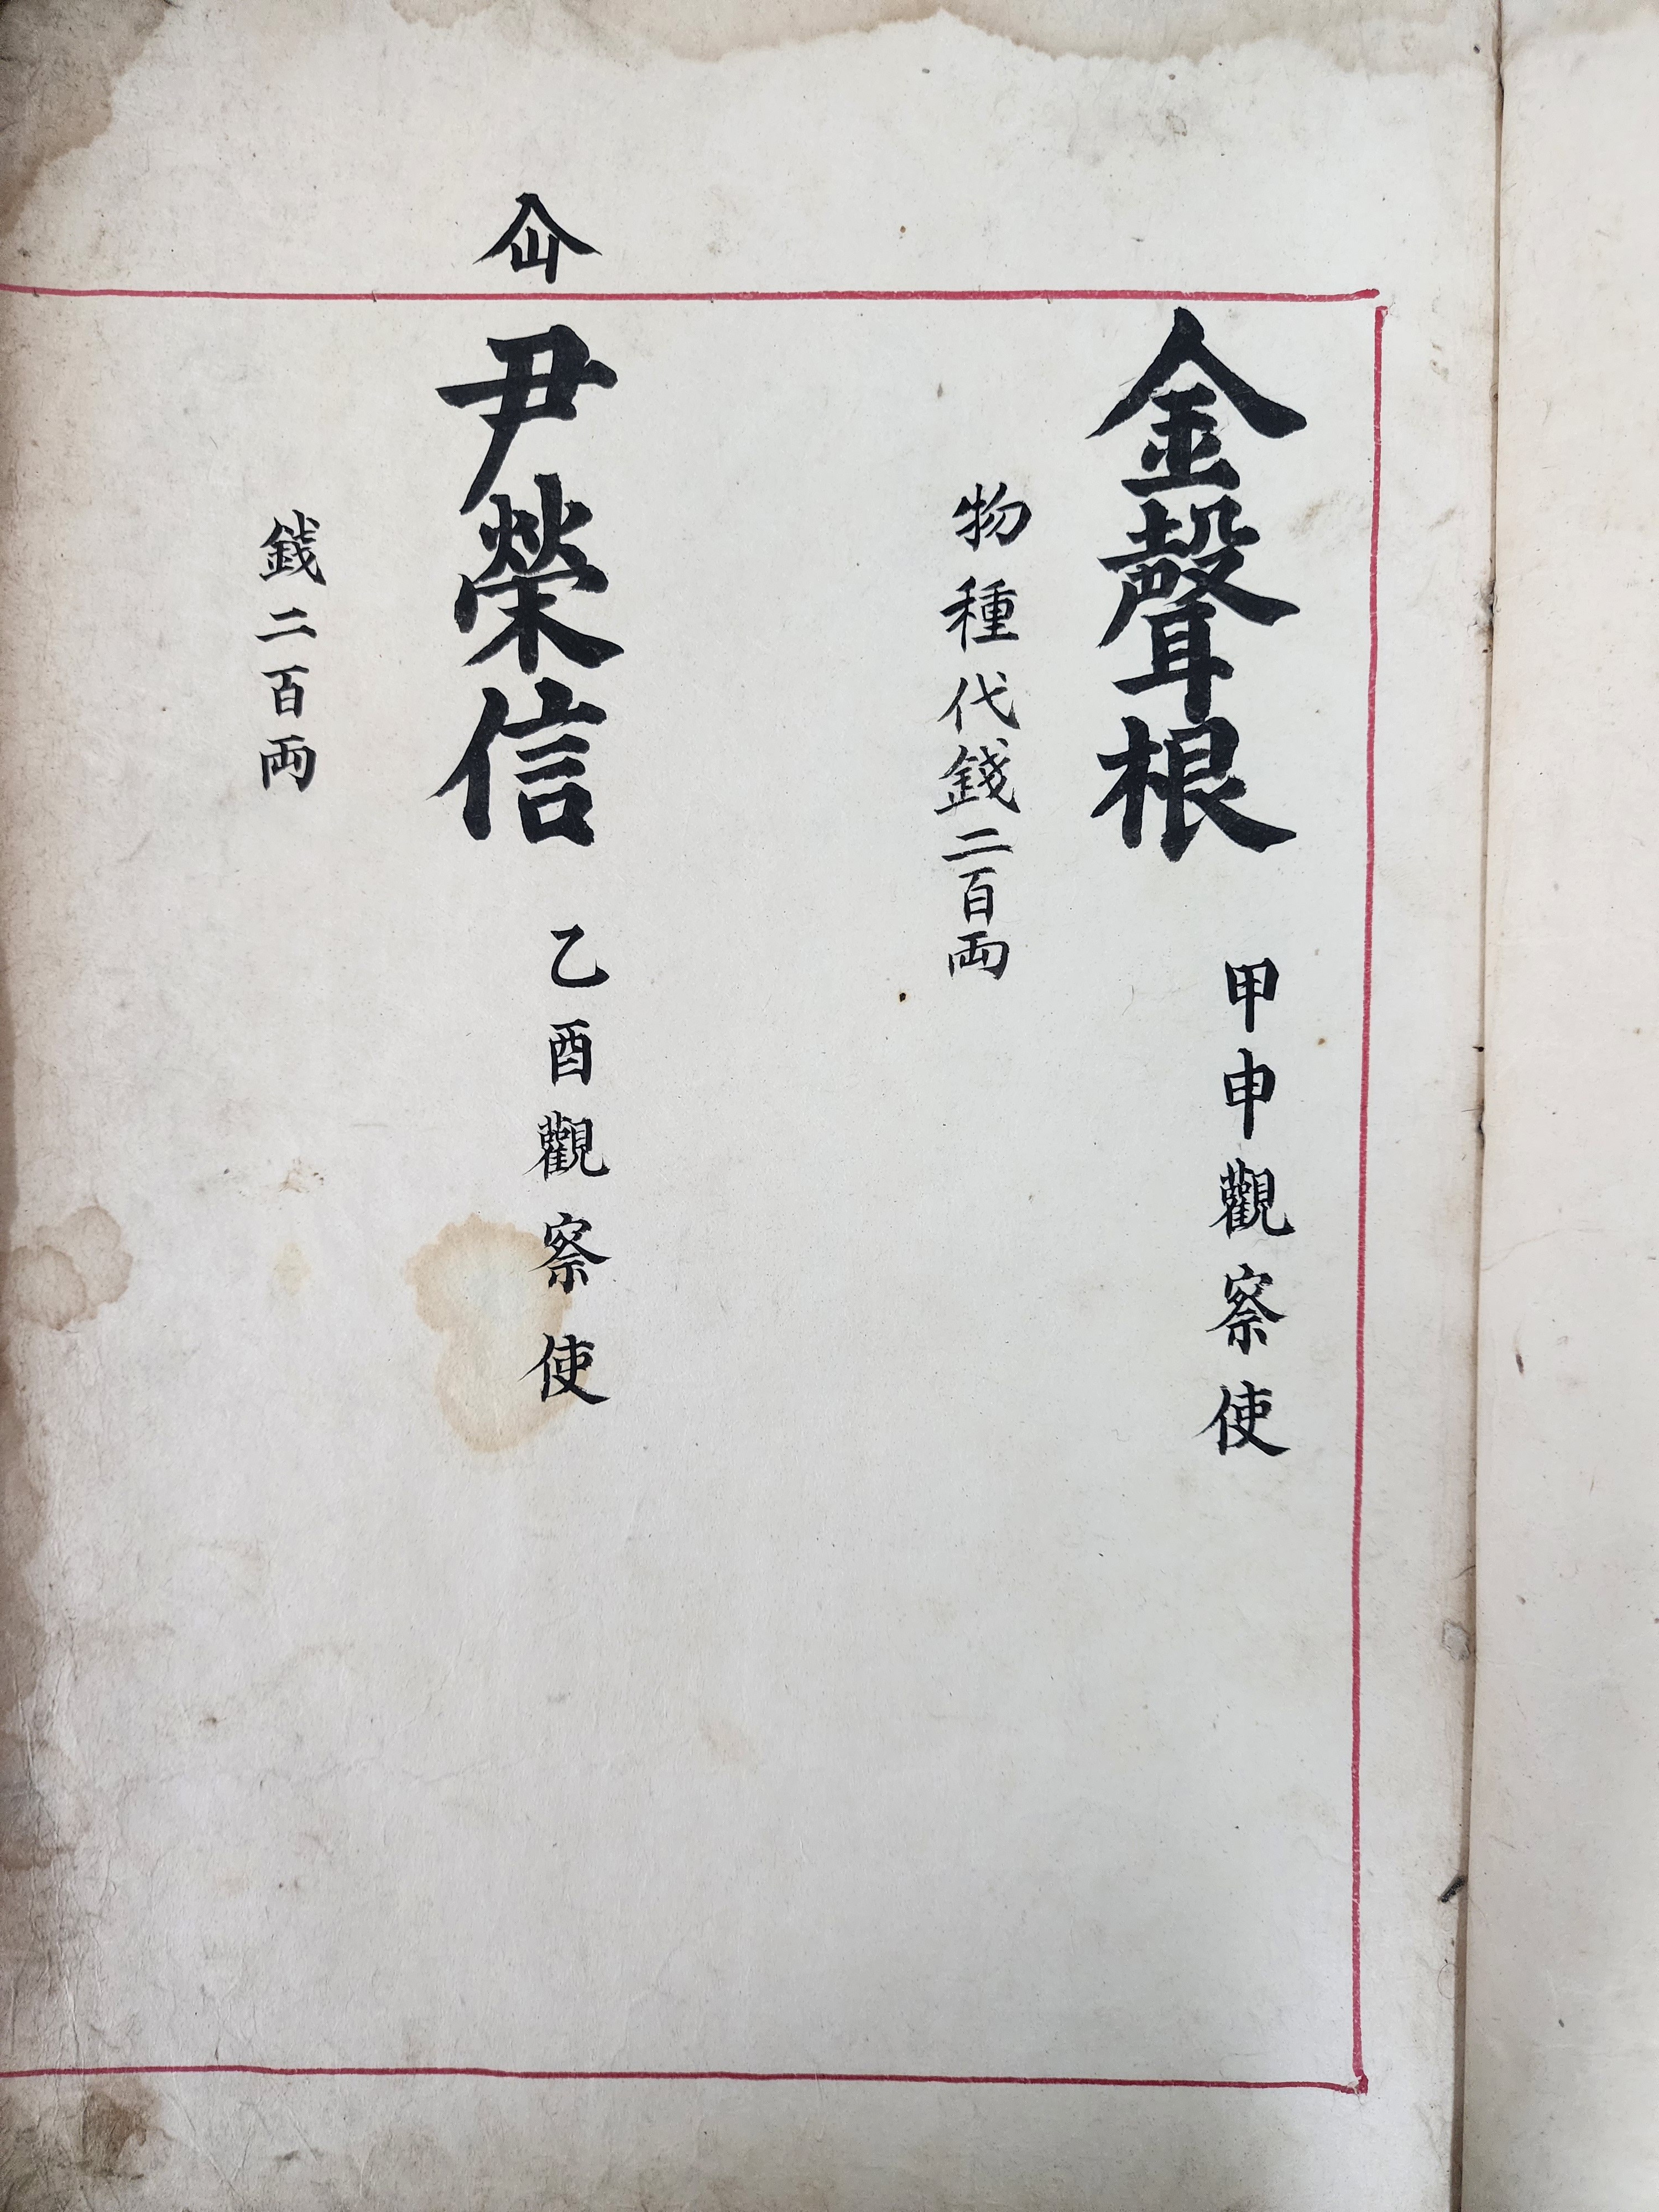 金聲根 甲申觀察使
物種代錢二百両
仚
尹榮信 乙酉觀察使
銭二百両